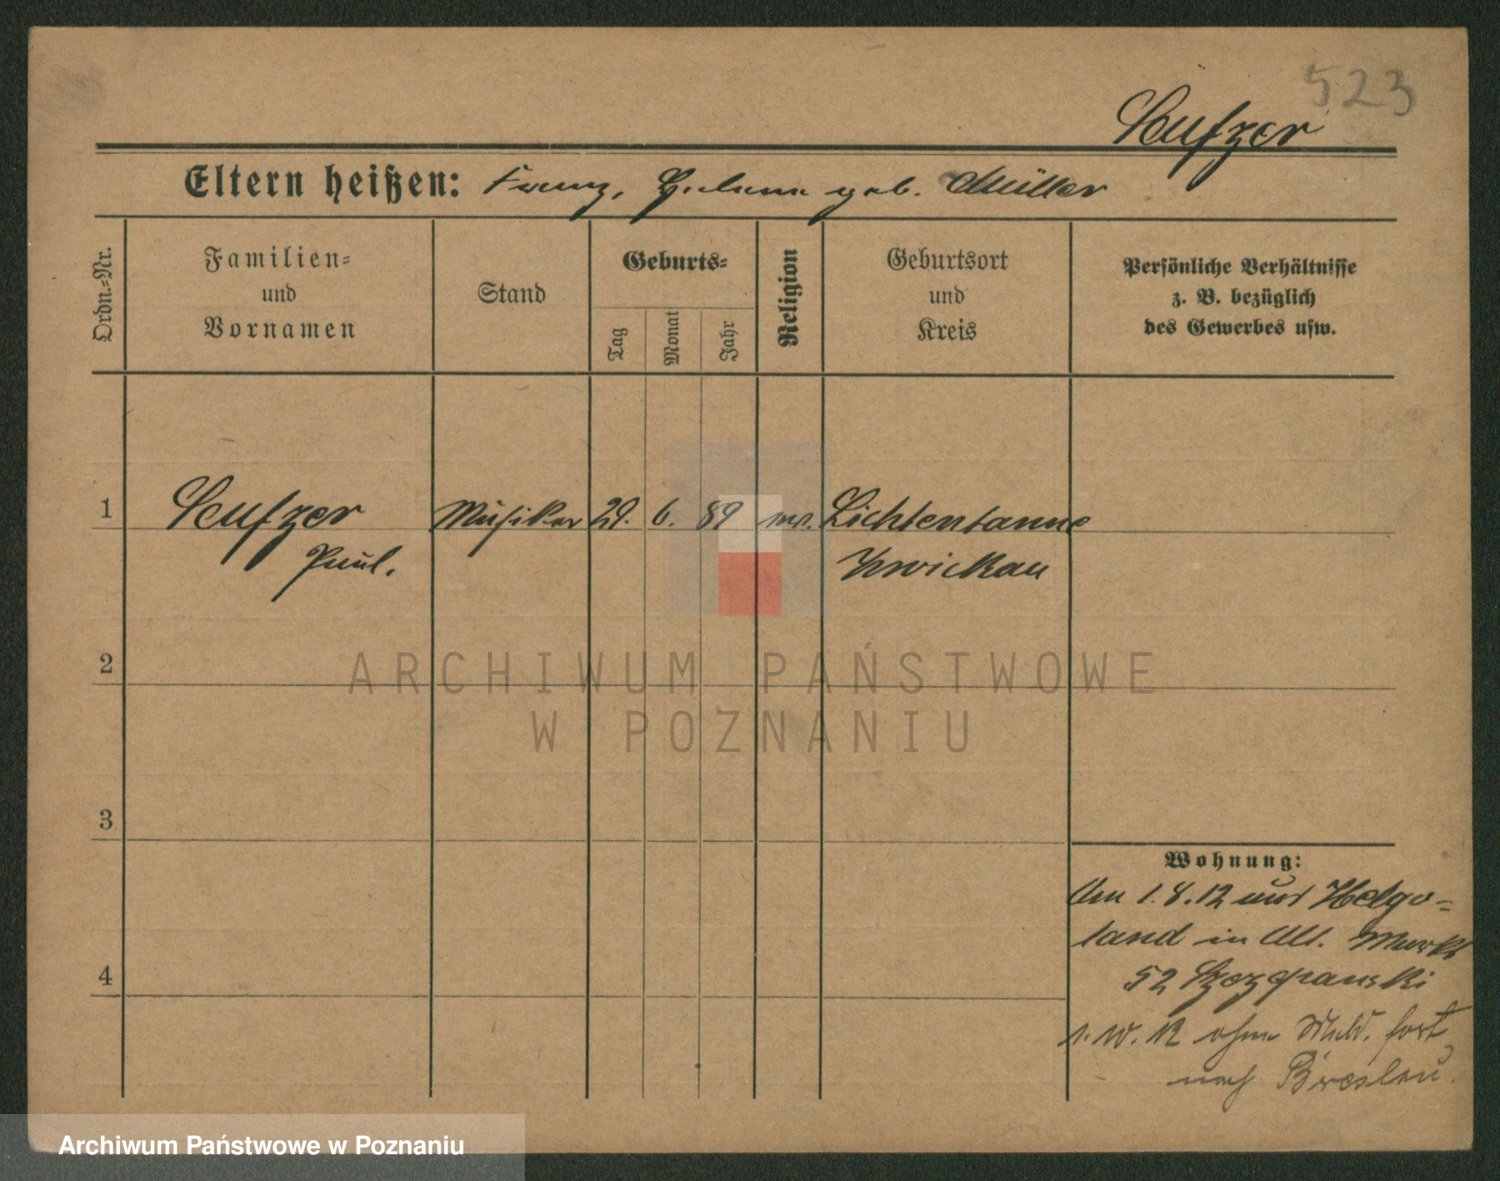 523
Seufzer
Eltern heißen: Franz, Helene geb. Müller
Ordn.-Nr.
Familien-
und
Vornamen
Stand
Geburts-
Tag
Monat
Jahr
Religion
Geburtsort
und
Kreis
Persönliche Verhältnisse
z. B. bezüglich
des Gewerbes usw.
1
Seufzer
Paul.
Musiker
29.
6.
89
ev.
Lichtentanne
Zwickau
2
ARCHIWUM PAŃSTWOWE
W POZNANIU
3
Wohnung:
Am 1.8.12 aus Helgo-
land in Alt. Markt
4
52 Szczepanski
1.10.12 ohne Meld. fort
nach Breslau.
Archiwum Państwowe w Poznaniu